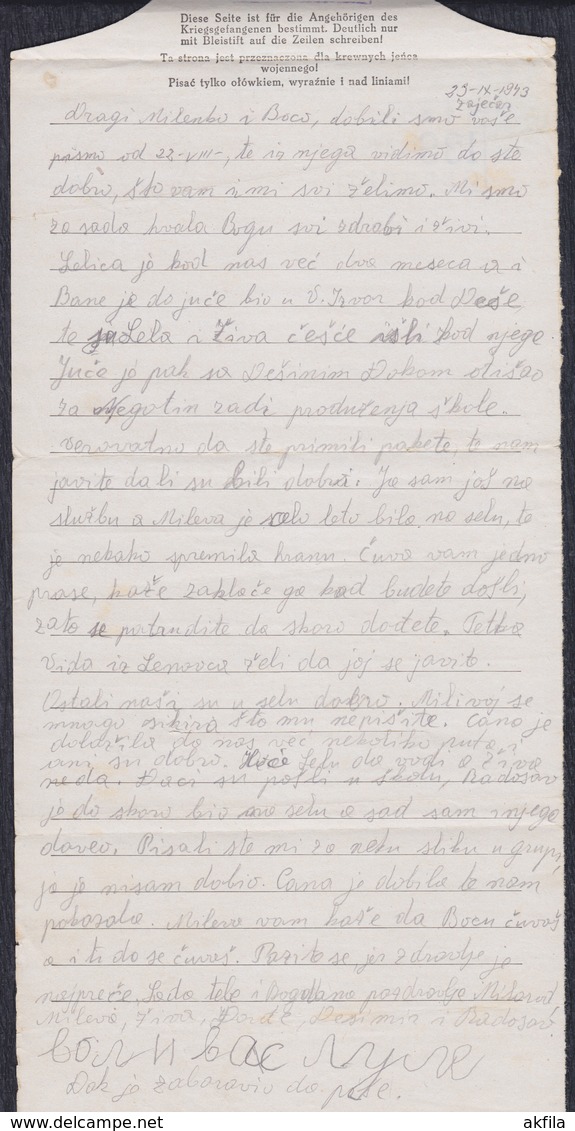 Diese Seite ist für die Angehörigen des
Kriegsgefangenen bestimmt. Deutlich nur
mit Bleistift auf die Zeilen schreiben!
Ta strona jest przeznaczona dla krewnych jeńca
wojennego!
Pisać tylko ołówkiem, wyraźnie i nad liniami!
23-IX-1943
Zaječar
Dragi Milenko i Boco, dobili smo vaše
pismo od 22-VIII-, te iz njega vidimo da ste
dobro, što vam i mi svi želimo. Mi smo
za sada hvala Bogu svi zdravi i živi.
Lelica je kod nas već dva meseca a i
Bane je do juče bio u V. Izvor kod Deše,
te su Lela i Živa češće išli kod njega.
Juče je pak sa Dešinim Đokom otišao
za Negotin radi produženja škole.
Verovatno da ste primili pakete, te nam
javite da li su bili dobri. Ja sam još na
službu a Mileva je celo leto bila na selu, te
je nekako spremila hranu. Čuva vam jedno
prase, kaže zaklaće ga kad budete došli,
zato se potrudite da skoro dođete. Tetka
Vida iz Lenovca želi da joj se javite.
Ostali naši su u selu dobro. Milivoj se
mnogo sikira što mu nepišite. Cana je
dolazila do nas već nekoliko puta,
oni su dobro. Hoće Lelu da vodi a Živa
neda. Đaci su pošli u školu, Radosav
je do skoro bio na selu a sad sam i njega
doveo. Pisali ste mi za neku sliku u grupi,
ja je nisam dobio. Cana je dobila te nam
pokazala. Mileva vam kaže da Bocu čuvaš
a i ti da se čuvaš. Pazite se, jer zdravlje je
najpreče. Sada tela i Bogdana pozdravlja
Mileva, Živa, Đorđe, Desimir i Radosav
воли вас
Dok je zaboravio da piše.